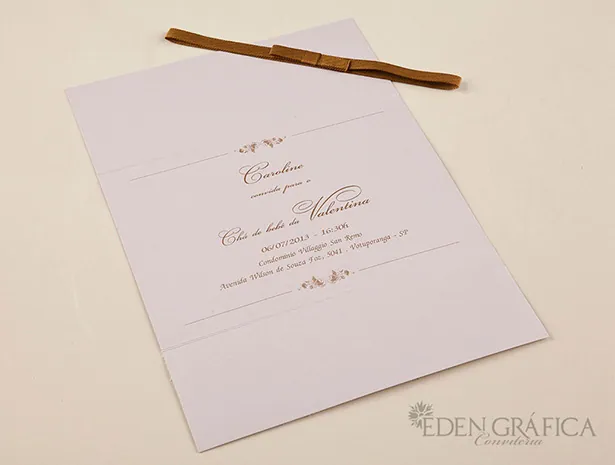 Caroline
convida para o
Chá de bebê da Valentina
06/07/2013 - 16:30h
Condomínio Villaggio San Remo
Avenida Wilson de Souza Foz, 5041 - Votuporanga - SP
EDEN GRÁFICA
Conviteria